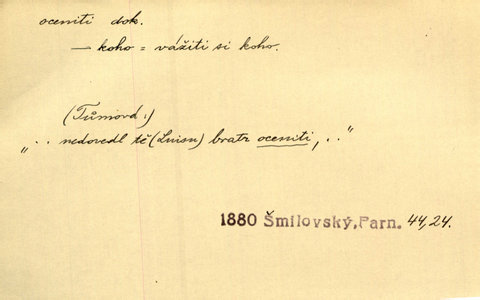 oceniti dok.
— koho = vážiti si koho.
(Tůmovd.:)
„.. nedovedl tě (Luisu) bratr oceniti, .."
1880 Šmilovský, Parn. 44,24.